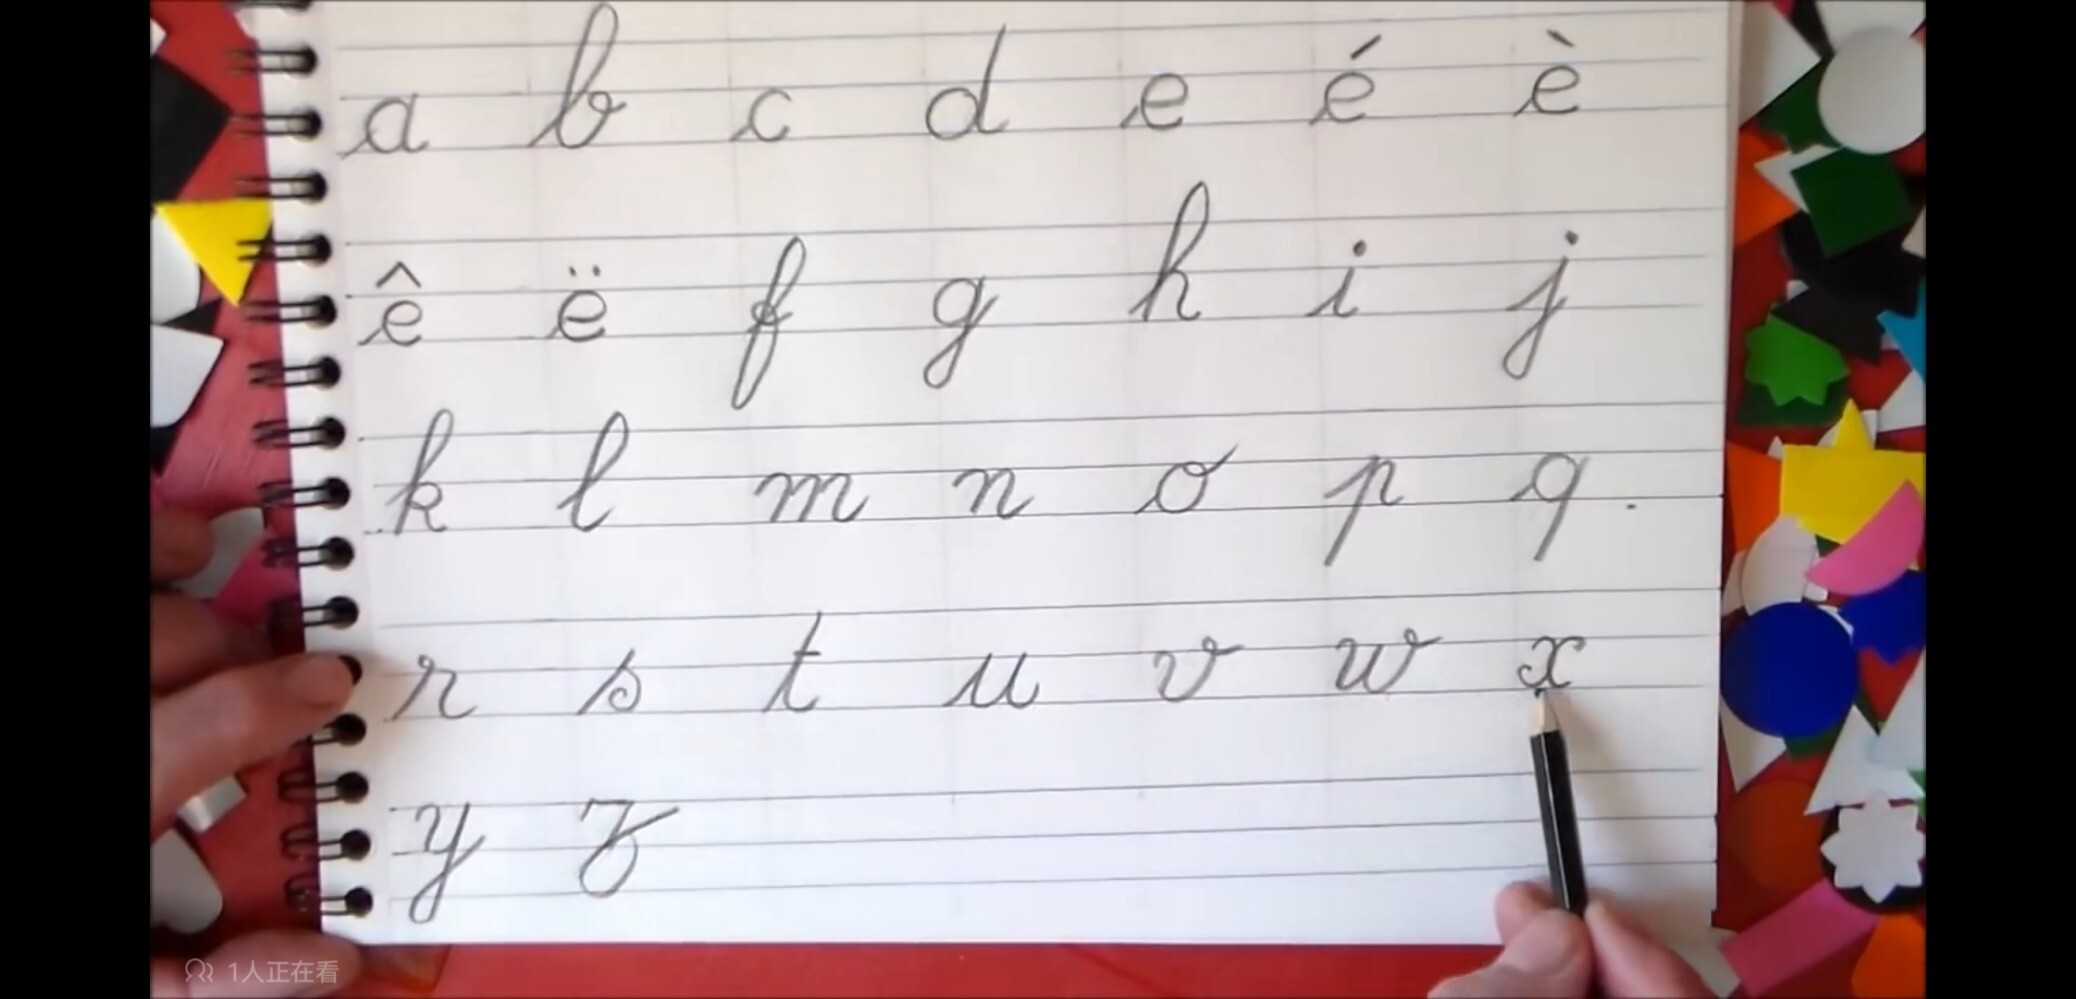 a b c d e é è
ê ë f g h i j
k l m n o p q .
r s t u v w x
y z
1人正在看